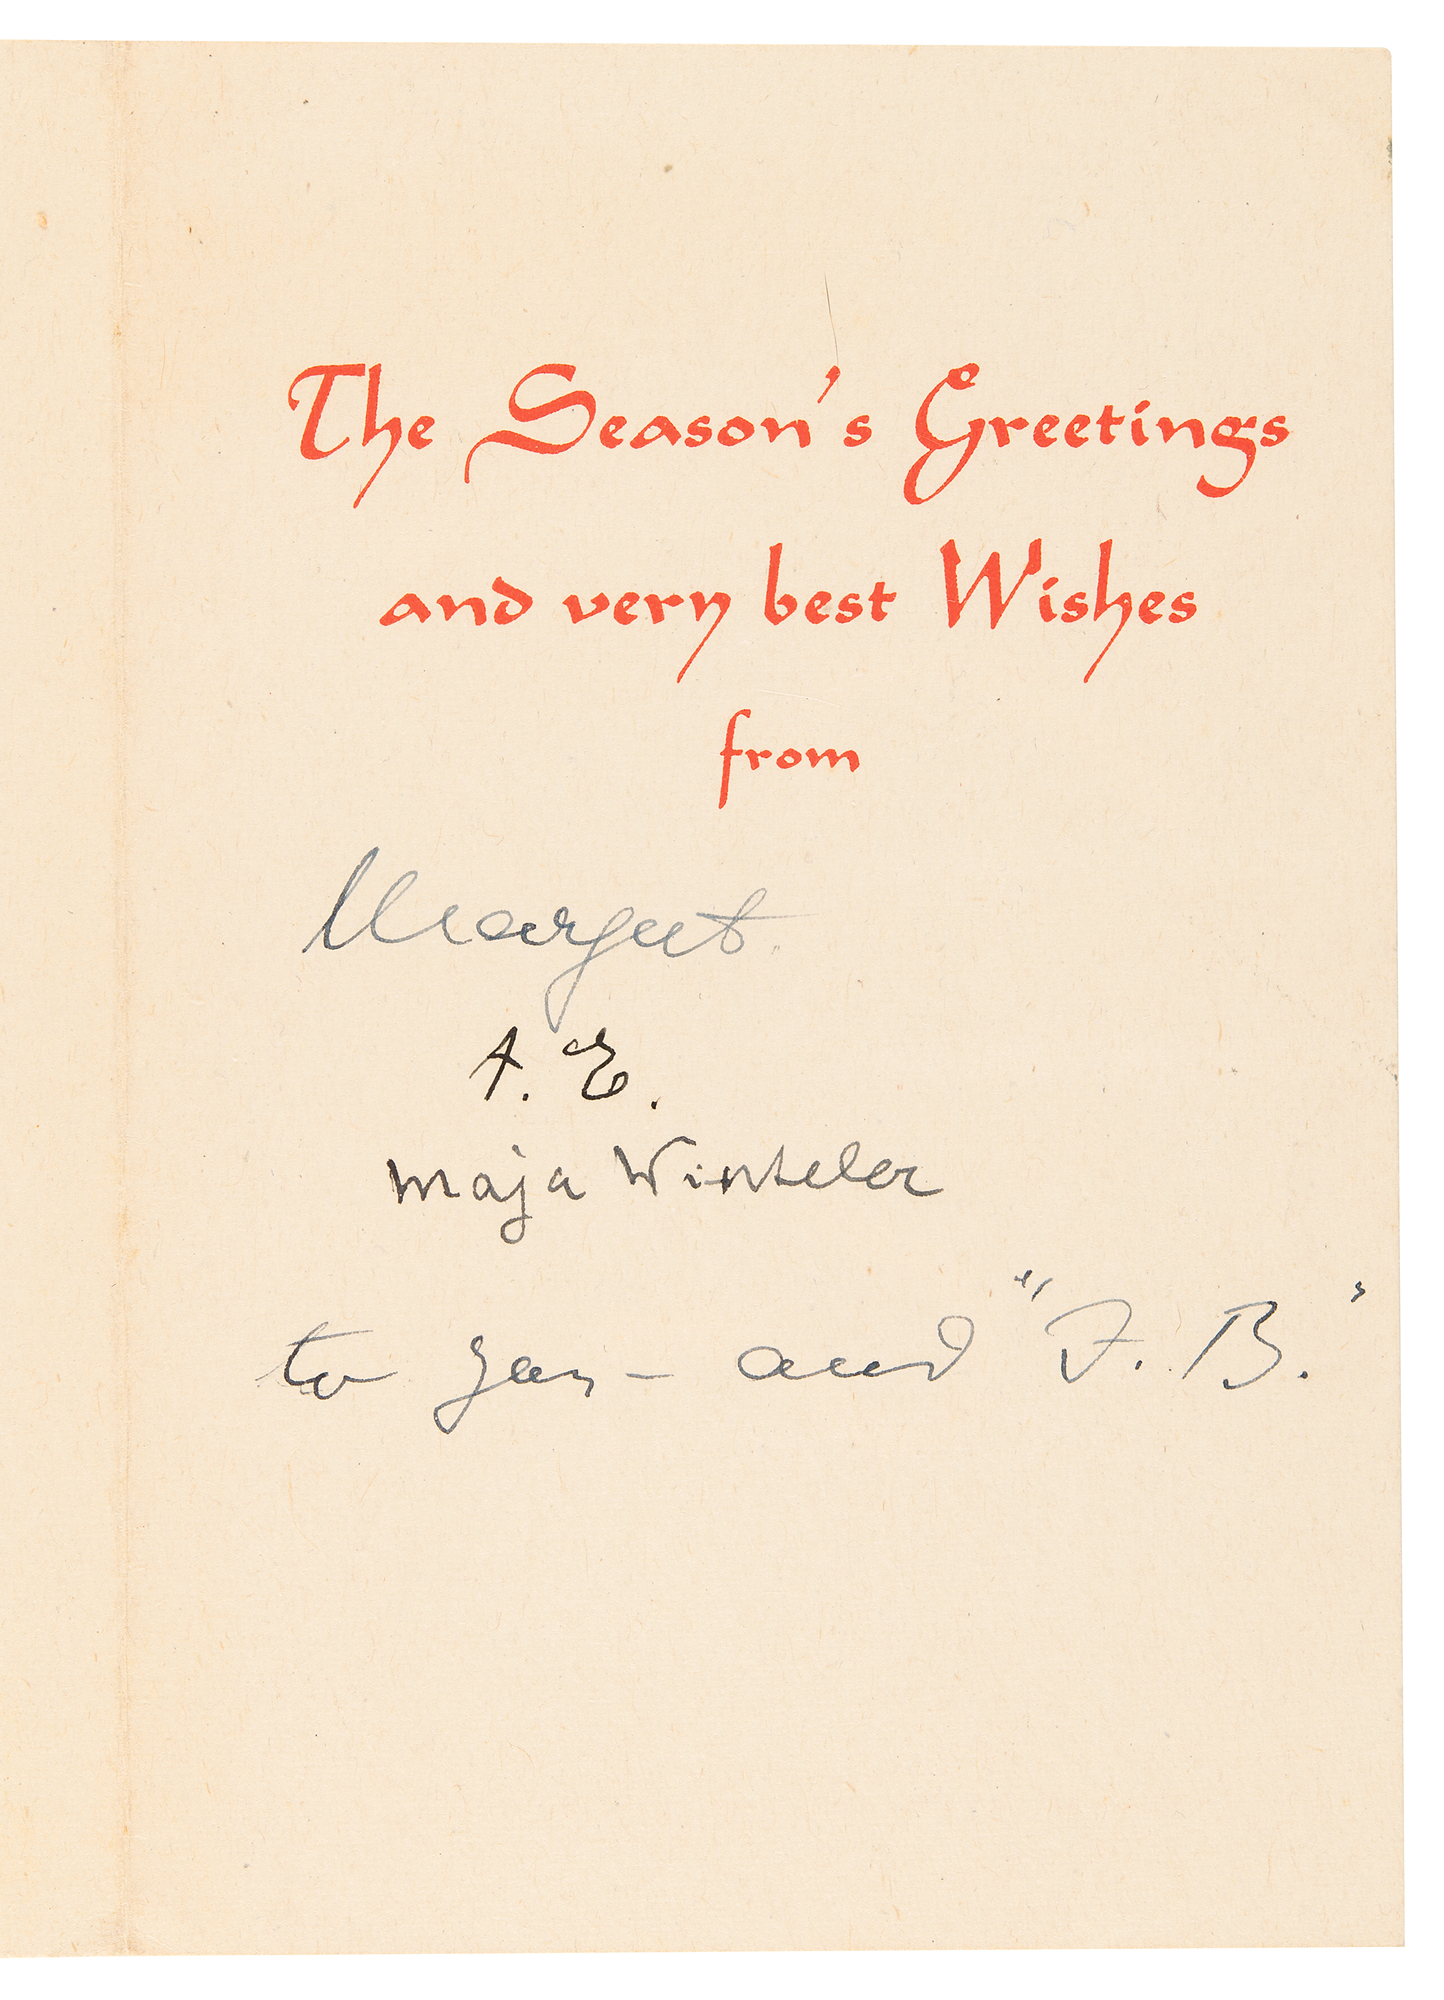 The Season's Greetings
and very best Wishes
from
Margot.
A. E.
Maja Winteler
to you – and "F. B."